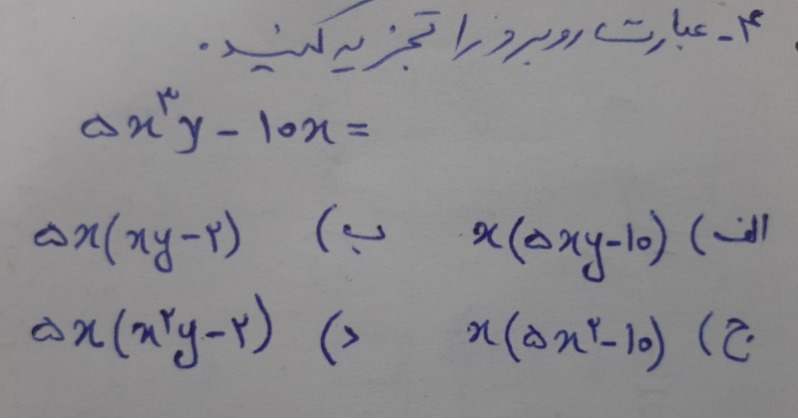 ۴- عبارت روبرو را تجزیه کنید.
۵x³y - ۱۰x =
الف) x(۵xy-۱۰)    ب) ۵x(xy-۲)
ج) x(۵x²-۱۰)    د) ۵x(x²y-۲)